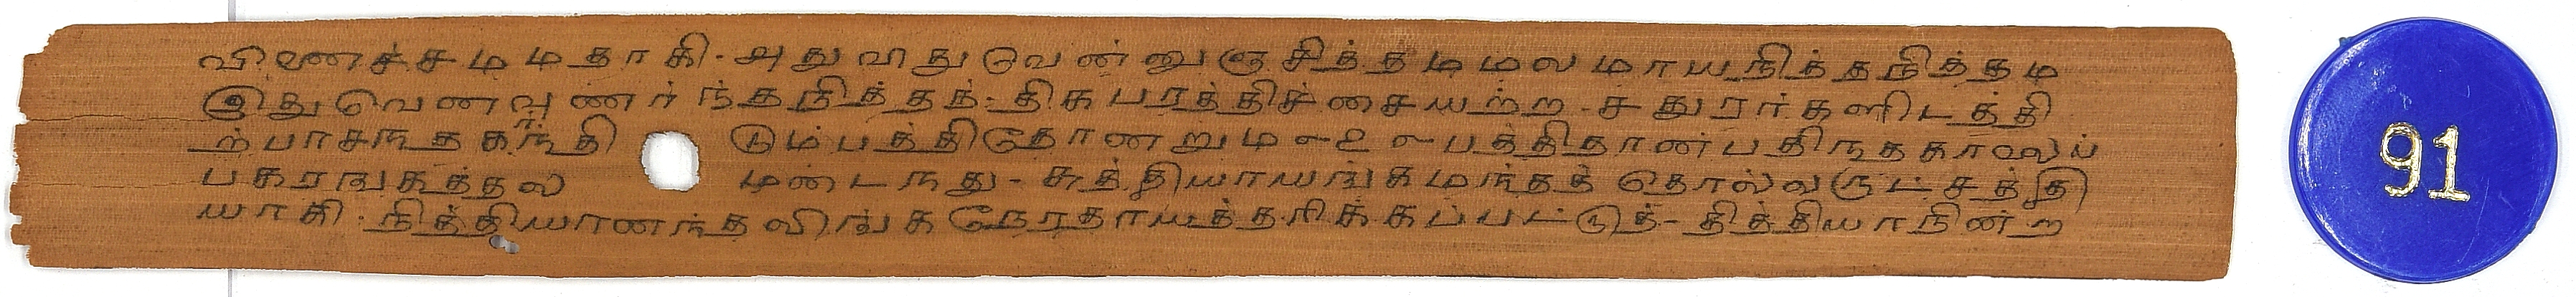 விணைச்சமமதாகி-அதுவிதுவென்னுஞ்சித்தமமலமாயநித்தநித்தம
இதுவெணவுணர்ந்தநித்தந்-திகபரத்திச்சையற்ற-சதுரர்களிடத்தி
ற்பாசநதகர்ந்தி டும்பத்திதோணறும ௨ பத்திதான்பதிநதகாலைப்
பகரஙகத்தல் மடைநது-சுத்தியாயஙகமந்தத் தொல்லருட்சத்தி
யாகி-நித்தியாணந்தலிங்கநேரதாயத்தரிக்கப்பட்டுத்-தித்தியாநின்ற
91